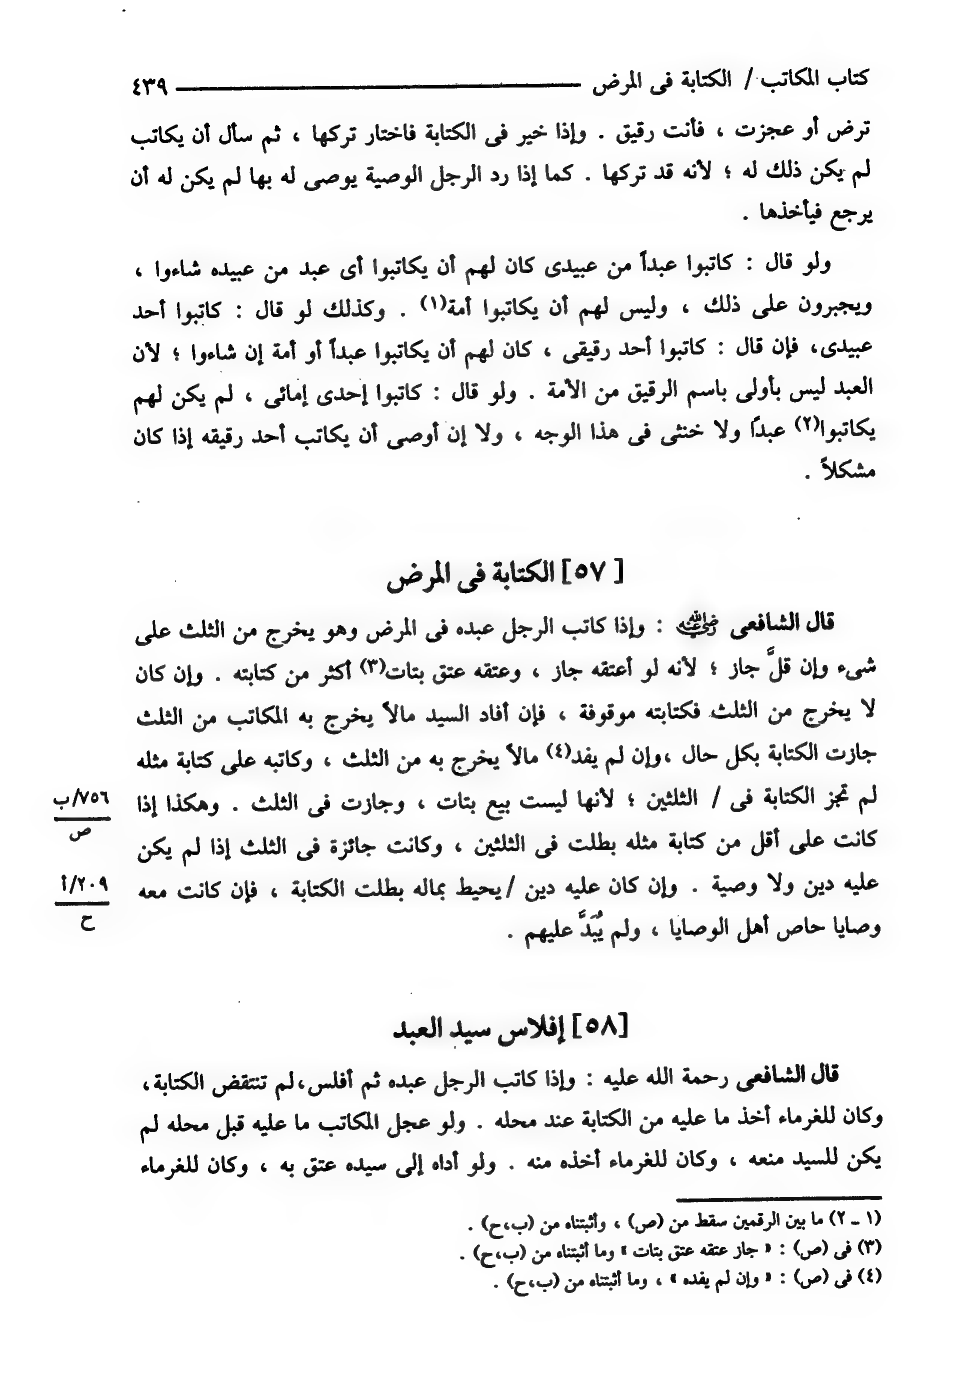 كتاب المكاتب / الكتابة فى المرض ـــــــــــــــــــــ ٤٣٩
ترض أو عجزت ، فأنت رقيق . وإذا خير فى الكتابة فاختار تركها ، ثم سأل أن يكاتب
لم يكن ذلك له ؛ لأنه قد تركها . كما إذا رد الرجل الوصية يوصى له بها لم يكن له أن
يرجع فيأخذها .
ولو قال : كاتبوا عبداً من عبيدى كان لهم أن يكاتبوا أى عبد من عبيده شاءوا ،
ويجبرون على ذلك ، وليس لهم أن يكاتبوا أمة(١) . وكذلك لو قال : كاتبوا أحد
عبيدى، فإن قال : كاتبوا أحد رقيقى ، كان لهم أن يكاتبوا عبداً أو أمة إن شاءوا ؛ لأن
العبد ليس بأولى باسم الرقيق من الأمة . ولو قال : كاتبوا إحدى إمائى ، لم يكن لهم
يكاتبوا(٢) عبدًا ولا خنثى فى هذا الوجه ، ولا إن أوصى أن يكاتب أحد رقيقه إذا كان
مشكلاً .
[ ٥٧] الكتابة فى المرض
قال الشافعى رضي الله عنه : وإذا كاتب الرجل عبده فى المرض وهو يخرج من الثلث على
شىء وإن قلَّ جاز ؛ لأنه لو أعتقه جاز ، وعتقه عتق بتات(٣) أكثر من كتابته . وإن كان
لا يخرج من الثلث فكتابته موقوفة ، فإن أفاد السيد مالاً يخرج به المكاتب من الثلث
جازت الكتابة بكل حال ،وإن لم يفد(٤) مالاً يخرج به من الثلث ، وكاتبه على كتابة مثله
لم تجز الكتابة فى / الثلثين ؛ لأنها ليست بيع بتات ، وجازت فى الثلث . وهكذا إذا
٧٥٦/ب
ص
كانت على أقل من كتابة مثله بطلت فى الثلثين ، وكانت جائزة فى الثلث إذا لم يكن
عليه دين ولا وصية . وإن كان عليه دين / يحيط بماله بطلت الكتابة ، فإن كانت معه
٢٠٩/أ
ح
وصايا حاص أهل الوصايا ، ولم يُبَدَّ عليهم .
[٥٨] إفلاس سيد العبد
قال الشافعى رحمة الله عليه : وإذا كاتب الرجل عبده ثم أفلس،لم تنتقض الكتابة،
وكان للغرماء أخذ ما عليه من الكتابة عند محله . ولو عجل المكاتب ما عليه قبل محله لم
يكن للسيد منعه ، وكان للغرماء أخذه منه . ولو أداه إلى سيده عتق به ، وكان للغرماء
(١ ـ ٢) ما بين الرقمين سقط من (ص) ، وأثبتناه من (ب،ح) .
(٣) فى (ص) : « جاز عتقه عتق بتات » وما أثبتناه من (ب،ح) .
(٤) فى (ص) : « وإن لم يفده » ، وما أثبتناه من (ب،ح) .